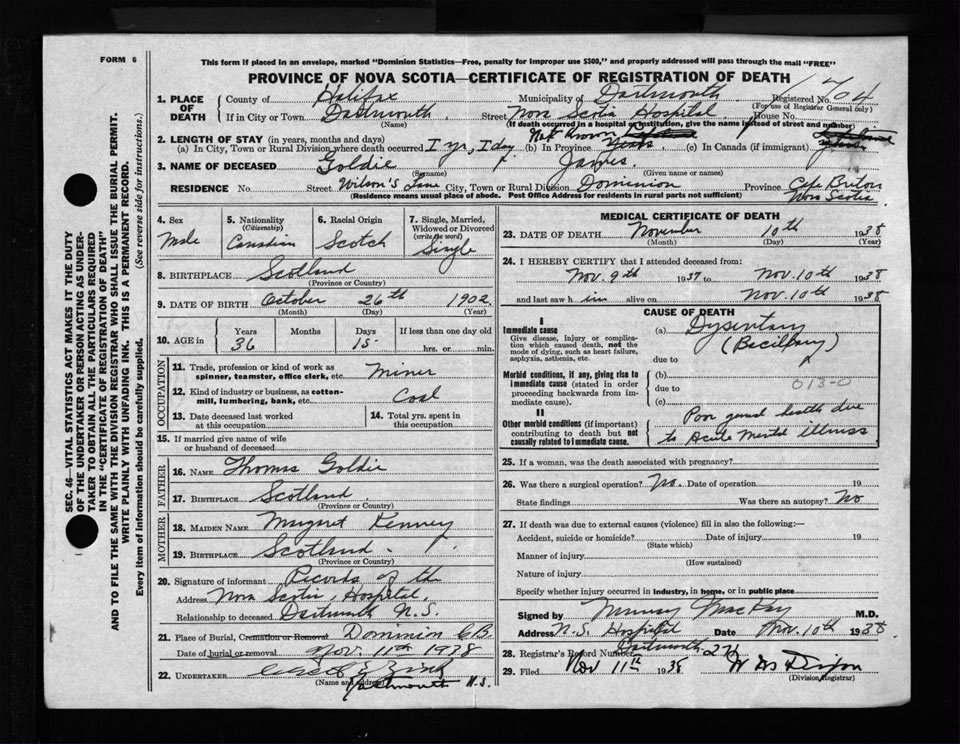 FORM 6
This form if placed in an envelope, marked "Dominion Statistics—Free, penalty for improper use $300," and properly addressed will pass through the mail "FREE"
PROVINCE OF NOVA SCOTIA—CERTIFICATE OF REGISTRATION OF DEATH
1. PLACE OF DEATH County of Halifax Municipality of Dartmouth Registered No. 1704
(For use of Registrar General only)
If in City or Town Dartmouth Street Nova Scotia Hospital House No.
(Name) (If death occurred in a hospital or institution, give the name instead of street and number)
2. LENGTH OF STAY (in years, months and days) Not Known
(a) In City, Town or Rural Division where death occurred 1 yr, 1 day (b) In Province Years (c) In Canada (if immigrant)
3. NAME OF DECEASED Goldie James
(Surname) (Given name or names)
RESIDENCE No. Street Wilson's Lane City, Town or Rural Division Dominion Province Cape Breton
(Residence means usual place of abode. Post Office Address for residents in rural parts not sufficient) Nova Scotia
SEC. 46—VITAL STATISTICS ACT MAKES IT THE DUTY
OF THE UNDERTAKER OR PERSON ACTING AS UNDER-
TAKER TO OBTAIN ALL THE PARTICULARS REQUIRED
IN THE "CERTIFICATE OF REGISTRATION OF DEATH"
AND TO FILE THE SAME WITH THE DIVISION REGISTRAR WHO SHALL ISSUE THE BURIAL PERMIT.
WRITE PLAINLY WITH UNFADING INK. THIS IS A PERMANENT RECORD.
Every item of information should be carefully supplied. (See reverse side for instructions.)
4. Sex 5. Nationality 6. Racial Origin 7. Single, Married,
(Citizenship) Widowed or Divorced
(write the word)
Male Canadian Scotch Single
8. BIRTHPLACE Scotland
(Province or Country)
9. DATE OF BIRTH October 26th 1902
(Month) (Day) (Year)
10. AGE in Years Months Days If less than one day old
36 15 hrs. or min.
OCCUPATION
11. Trade, profession or kind of work as
spinner, teamster, office clerk, etc. Miner
12. Kind of industry or business, as cotton-
mill, lumbering, bank, etc. Coal
13. Date deceased last worked
at this occupation
14. Total yrs. spent in
this occupation
15. If married give name of wife
or husband of deceased
FATHER
16. NAME Thomas Goldie
17. BIRTHPLACE Scotland
(Province or Country)
MOTHER
18. MAIDEN NAME Margaret Kenney
19. BIRTHPLACE Scotland
(Province or Country)
20. Signature of informant Records of the
Address Nova Scotia Hospital,
Relationship to deceased Dartmouth N.S.
21. Place of Burial, Cremation or Removal Dominion C.B.
Date of burial or removal Nov. 11th 1938
22. UNDERTAKER
(Name and address) Dartmouth N.S.
MEDICAL CERTIFICATE OF DEATH
23. DATE OF DEATH November 10th 1938
(Month) (Day) (Year)
24. I HEREBY CERTIFY that I attended deceased from:
Nov. 9th 1937 to Nov. 10th 1938
and last saw h im alive on Nov. 10th 1938
CAUSE OF DEATH
I
Immediate cause
Give disease, injury or complica-
tion which caused death, not the
mode of dying, such as heart failure,
asphyxia, asthenia, etc.
(a) Dysentary
(Bacillary)
due to
Morbid conditions, if any, giving rise to
immediate cause (stated in order
proceeding backwards from im-
mediate cause).
(b)
due to 013-0
(c)
II
Other morbid conditions (if important)
contributing to death but not
causally related to immediate cause.
Poor general health due
to Acute Mental Illness
25. If a woman, was the death associated with pregnancy?
26. Was there a surgical operation? No. Date of operation 19
State findings Was there an autopsy? No
27. If death was due to external causes (violence) fill in also the following:—
Accident, suicide or homicide? Date of injury 19
(State which)
Manner of injury
(How sustained)
Nature of injury
Specify whether injury occurred in industry, in home, or in public place
Signed by Murray MacKay M.D.
Address N.S. Hospital Date Nov. 10th 1938
28. Registrar's Record Number Dartmouth 271
29. Filed Nov 11th 1938
(Division Registrar)